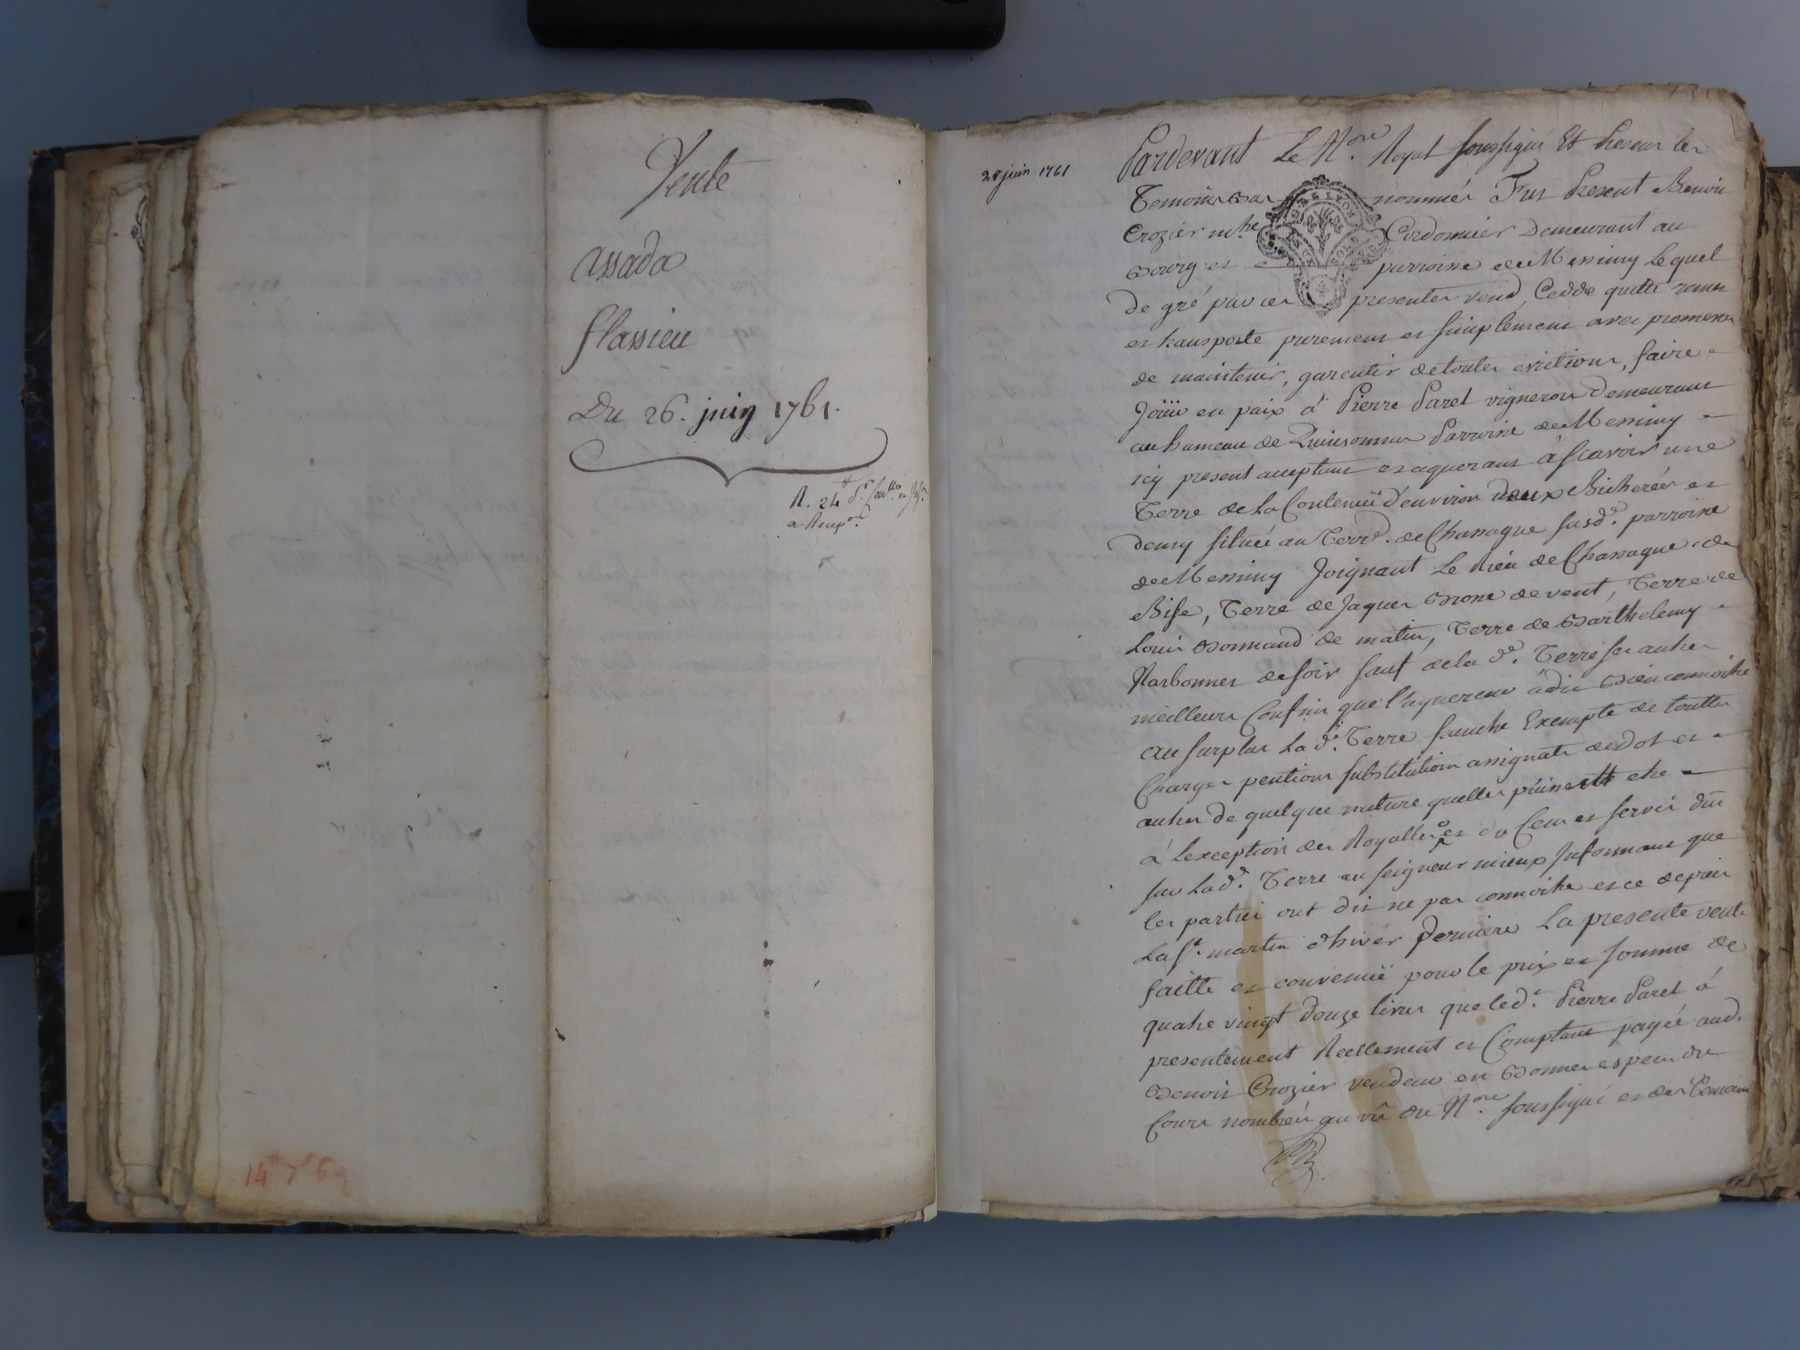 Vente
assada
flassieu
Du 26. juin 1761.
R. 24
28 juin 1761
Pardevant Le N.re Royal soussigné Et Presens les
Temoins bas nommés Fut Present Benoit
Crozier m.tre Cordonnier Demeurant au
Bourg et parroisse de Messimy Lequel
de gré par ces presentes vend, Cedde quitte remet
et transporte purement et simplement avec promesse
de maintenir, garentir de toutes evictions, faire
Joüir en paix à Pierre Paret vigneron Demeurant
au hameau de Quinsonnas Parroisse de Messimy
icy present acceptant et aquerant àsçavoir une
Terre de La Contenüe d'environ deux Bicherées et
demy située au Terre. de Chassagne susd.e parroisse
de Messimy Joignant Le Rieu de Chassagne de
Bise, Terre de Jaques Brone de vent, Terre de
Louis Bonnand de matin, Terre de Barthelemy
Narbonnes de soir sauf de la d.e Terre ses autres
meilleurs Confins que l'aquereur à dit Bien connoitre
au surplus La d.e Terre franche Exempte de touttes
Charges pentions substitution assignats de dot et
autres de quelque nature quelles püissent etre
à Lexception des Royalles et du Cens et servis dûs
sur Lad.e Terre au seigneur mieux Informant que
les parties ont dit ne pas connoitre et ce depuis
La s.t martin d'hiver derniere La presente vente
faitte et convenüe pour le prix et somme de
quatre vingt douze livres que led.t Pierre Paret à
presentement Reellement et Comptant payée aud.
Benoit Crozier vendeur en Bonnes especes du
Cours nombrées au vû du N.re soussigné et des Temoins
14 7 69